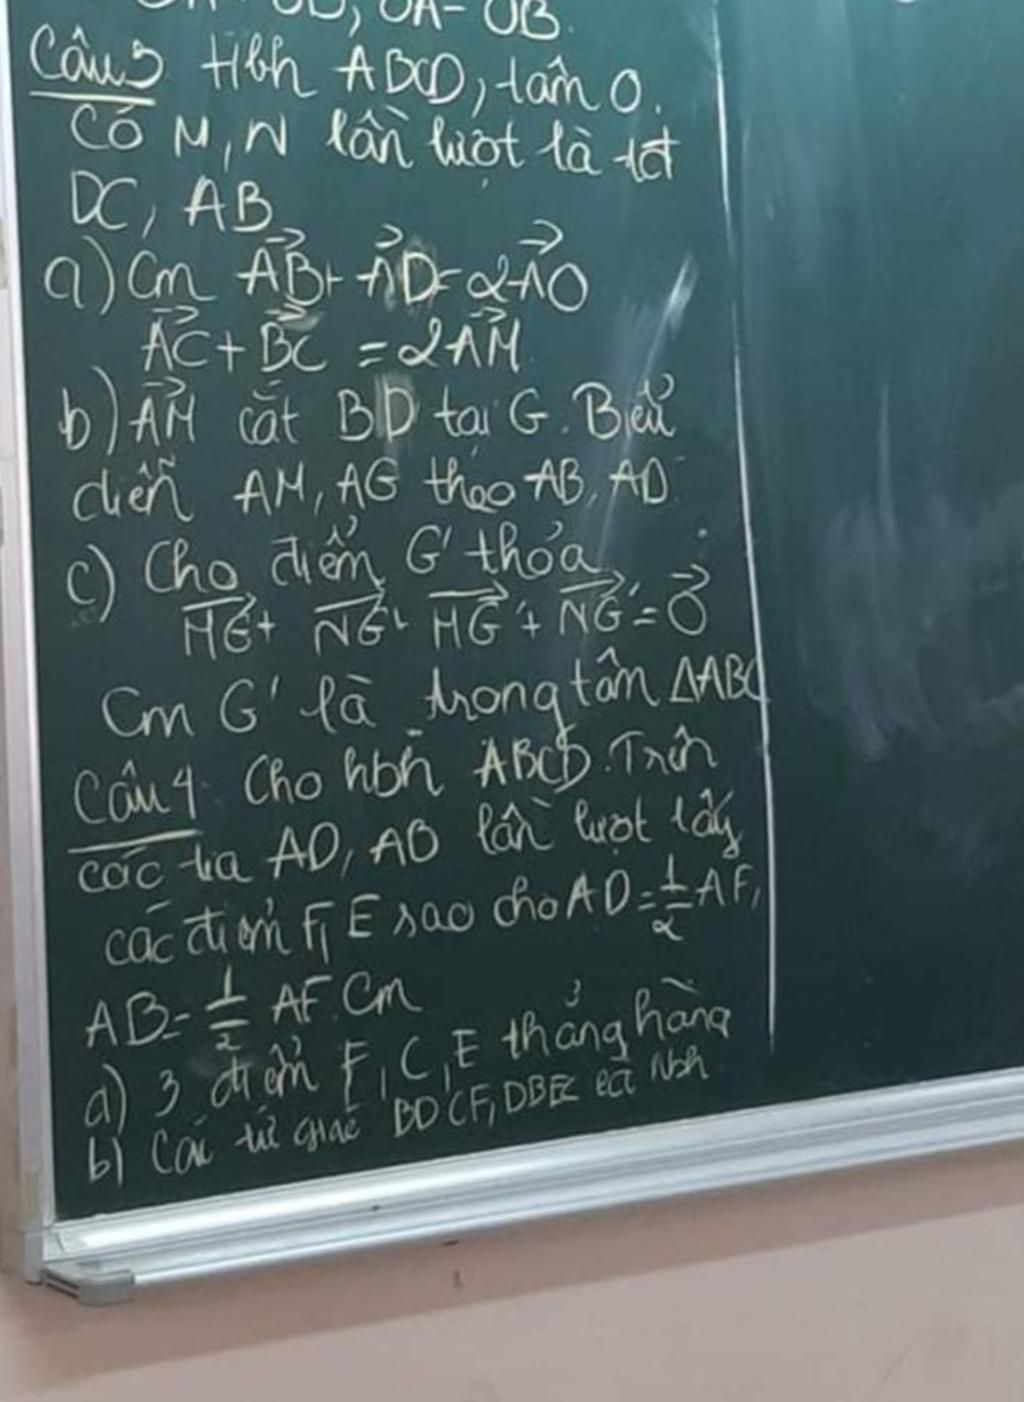 OA = OB.
Câu 3 Hbh ABCD, tâm O.
Có M, N lần lượt là tđ
DC, AB
a) Cm \vec{AB} + \vec{AD} = 2\vec{AO}
\vec{AC} + \vec{BC} = 2\vec{AM}
b) \vec{AM} cắt BD tại G. Biểu
diễn AM, AG theo AB, AD
c) Cho điểm G' thỏa
\vec{MG} + \vec{NG} + \vec{MG'} + \vec{NG'} = \vec{0}
Cm G' là trọng tâm ΔABC
Câu 4 Cho hbh ABCD. Trên
các tia AD, AB lần lượt lấy
các điểm F, E sao cho AD = \frac{1}{2} AF,
AB = \frac{1}{2} AF. Cm
a) 3 điểm F, C, E thẳng hàng
b) Các tứ giác BDCF, DBEC là hbh